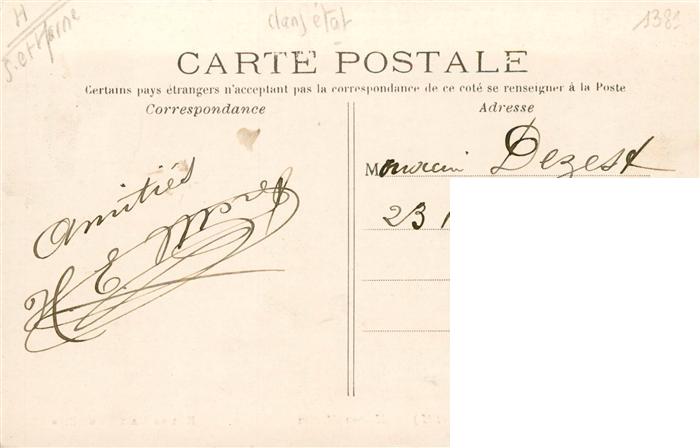 H
S. et Marne
(dans état
1381
CARTE POSTALE
Certains pays étrangers n'acceptant pas la correspondance de ce coté se renseigner à la Poste
Correspondance
Adresse
Monsieur Dezest
23
Amitiés
H. E.